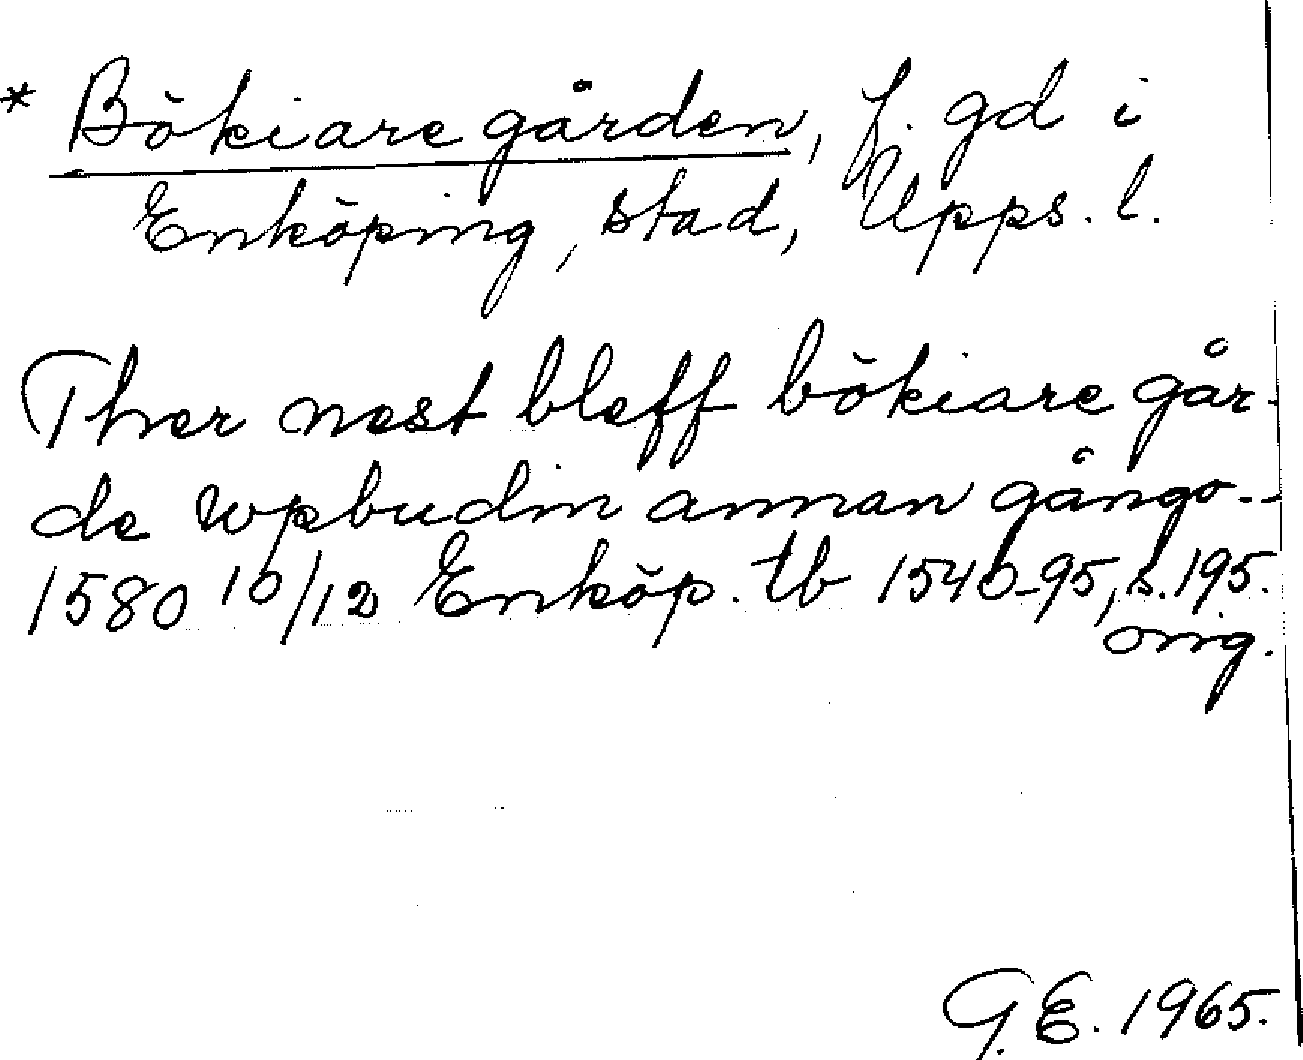 * Bökiare gården, f. gd i
Enköping, stad, Upps. l.
Ther nest bleff bökiare går-
de wpbudin annan gångo --
1580 10/12 Enköp. tb 1540-95, s. 195.
orig.
G. E. 1965.